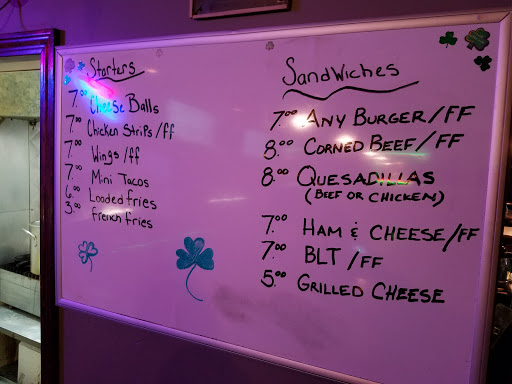 Starters
7.00 Cheese Balls
7.00 Chicken Strips/ff
7.00 Wings/ff
7.00 Mini Tacos
6.00 Loaded fries
3.00 french fries
SandWiches
7.00 Any Burger/FF
8.00 Corned Beef/FF
8.00 Quesadillas
(Beef or Chicken)
7.00 Ham & Cheese/FF
7.00 BLT/FF
5.00 Grilled Cheese